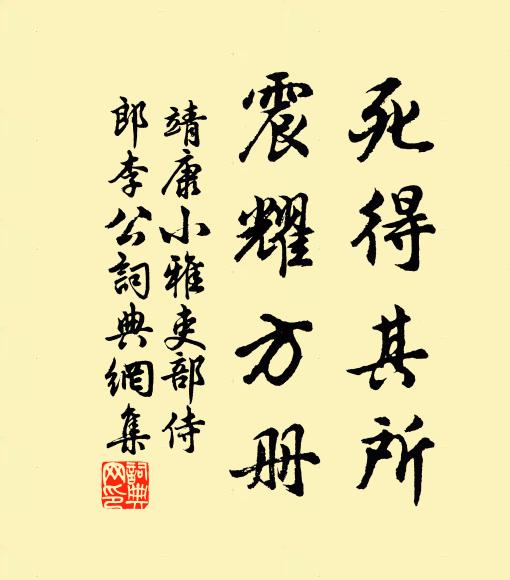 死得其所
震耀方册
靖康小雅吏部侍
郎李公詞典網集
詞典网印